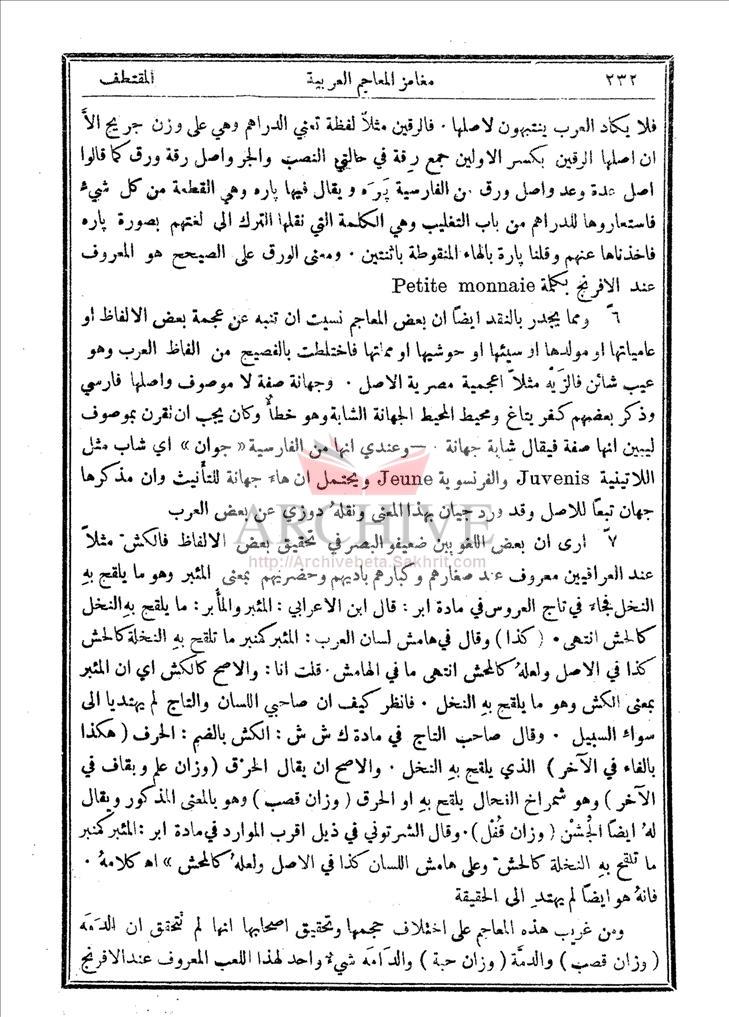 ٢٣٢ مغامز المعاجم العربية المقتطف
فلا يكاد العرب ينتبهون لاصلها ٠ فالرقين مثلاً لفظة تعني الدراهم وهي على وزن جريج الاَّ
ان اصلها الرقين بكسر الاولين جمع رقة في حالتي النصب والجر واصل رقة ورق كما قالوا
اصل عدة وعد واصل ورق من الفارسية پَرَه و يقال فيها پاره وهي القطعة من كل شيءٍ
فاستعاروها للدراهم من باب التغليب وهي الكلمة التي نقلها الترك الى لغتهم بصورة پاره
فاخذناها عنهم وقلنا پارة بالهاء المنقوطة باثنتين ٠ ومعنى الورق على الصيحح هو المعروف
عند الافرنج بكلمة Petite monnaie
٦ً ومما يجدر بالنقد ايضاً ان بعض المعاجم نسيت ان تنبه عن عجمة بعض الالفاظ او
عامياتها او مولدها او سيئها او حوشيها او مماتها فاختلطت بالفصيح من الفاظ العرب وهو
عيب شائن فالزَّيْه مثلاً اعجمية مصرية الاصل ٠ وجهانة صفة لا موصوف واصلها فارسي
وذكر بعضهم كفر يتاغ ومحيط المحيط الجهانة الشابة وهو خطأٌ وكان يجب ان تقرن بموصوف
ليبين انها صفة فيقال شابة جهانة ٠ — وعندي انها من الفارسية « جوان » اي شاب مثل
اللاتينية Juvenis والفرنسوية Jeune ويحتمل ان هاءَ جهانة للتأنيث وان مذكرها
جهان تبعًا للاصل وقد ورد جيان بهذا المعنى ونقلهُ دوزي عن بعض العرب
٧ً ارى ان بعض اللغويين ضعيفو البصر في تحقيق بعض الالفاظ فالكش مثلاً
عند العراقيين معروف عند صغارهم وكبارهم باديهم وحضريهم بمعنى المئبر وهو ما يلقح بهِ
النخل فجاءَ في تاج العروس في مادة ابر : قال ابن الاعرابي : المئبر والمأبر : ما يلقح بهِ النخل
كالحش انتهى ٠ ( كذا ) وقال في هامش لسان العرب : المئبر كمنبر ما تلقح بهِ النخلة كالحش
كذا في الاصل ولعلهُ كالمحش انتهى ما في الهامش ٠ قلت انا : والاصح كالكش اي ان المئبر
بمعنى الكش وهو ما يلقح بهِ النخل ٠ فانظر كيف ان صاحبي اللسان والتاج لم يهتديا الى
سواءَ السبيل ٠ وقال صاحب التاج في مادة ك ش ش : الكش بالضم : الحرف ( هكذا
بالفاء في الآخر ) الذي يلقح بهِ النخل ٠ والاصح ان يقال الحَرْق ( وزان علم وبقاف في
الآخر ) وهو شمراخ النحال يلقح بهِ او الحرق ( وزان قصب ) وهو بالمعنى المذكور ويقال
لهُ ايضًا الجُشْن ( وزان قُفْل )٠ وقال الشرتوني في ذيل اقرب الموارد في مادة ابر : المئبر كمنبر
ما تلقح بهِ النخلة كالحش وعلى هامش اللسان كذا في الاصل ولعلهُ كالمحش » اهـ كلامهُ ٠
فانهُ هو ايضًا لم يهتدِ الى الحقيقة
ومن غريب هذه المعاجم على اختلاف حجمها وتحقيق اصحابها انها لم تتحقق ان الدمَه
( وزان قصب ) والدمَّة ( وزان حبة ) والدَامَه شيءٌ واحد لهذا اللعب المعروف عند الافرنج
ARCHIVE
http://Archivebeta.Sakhrit.com